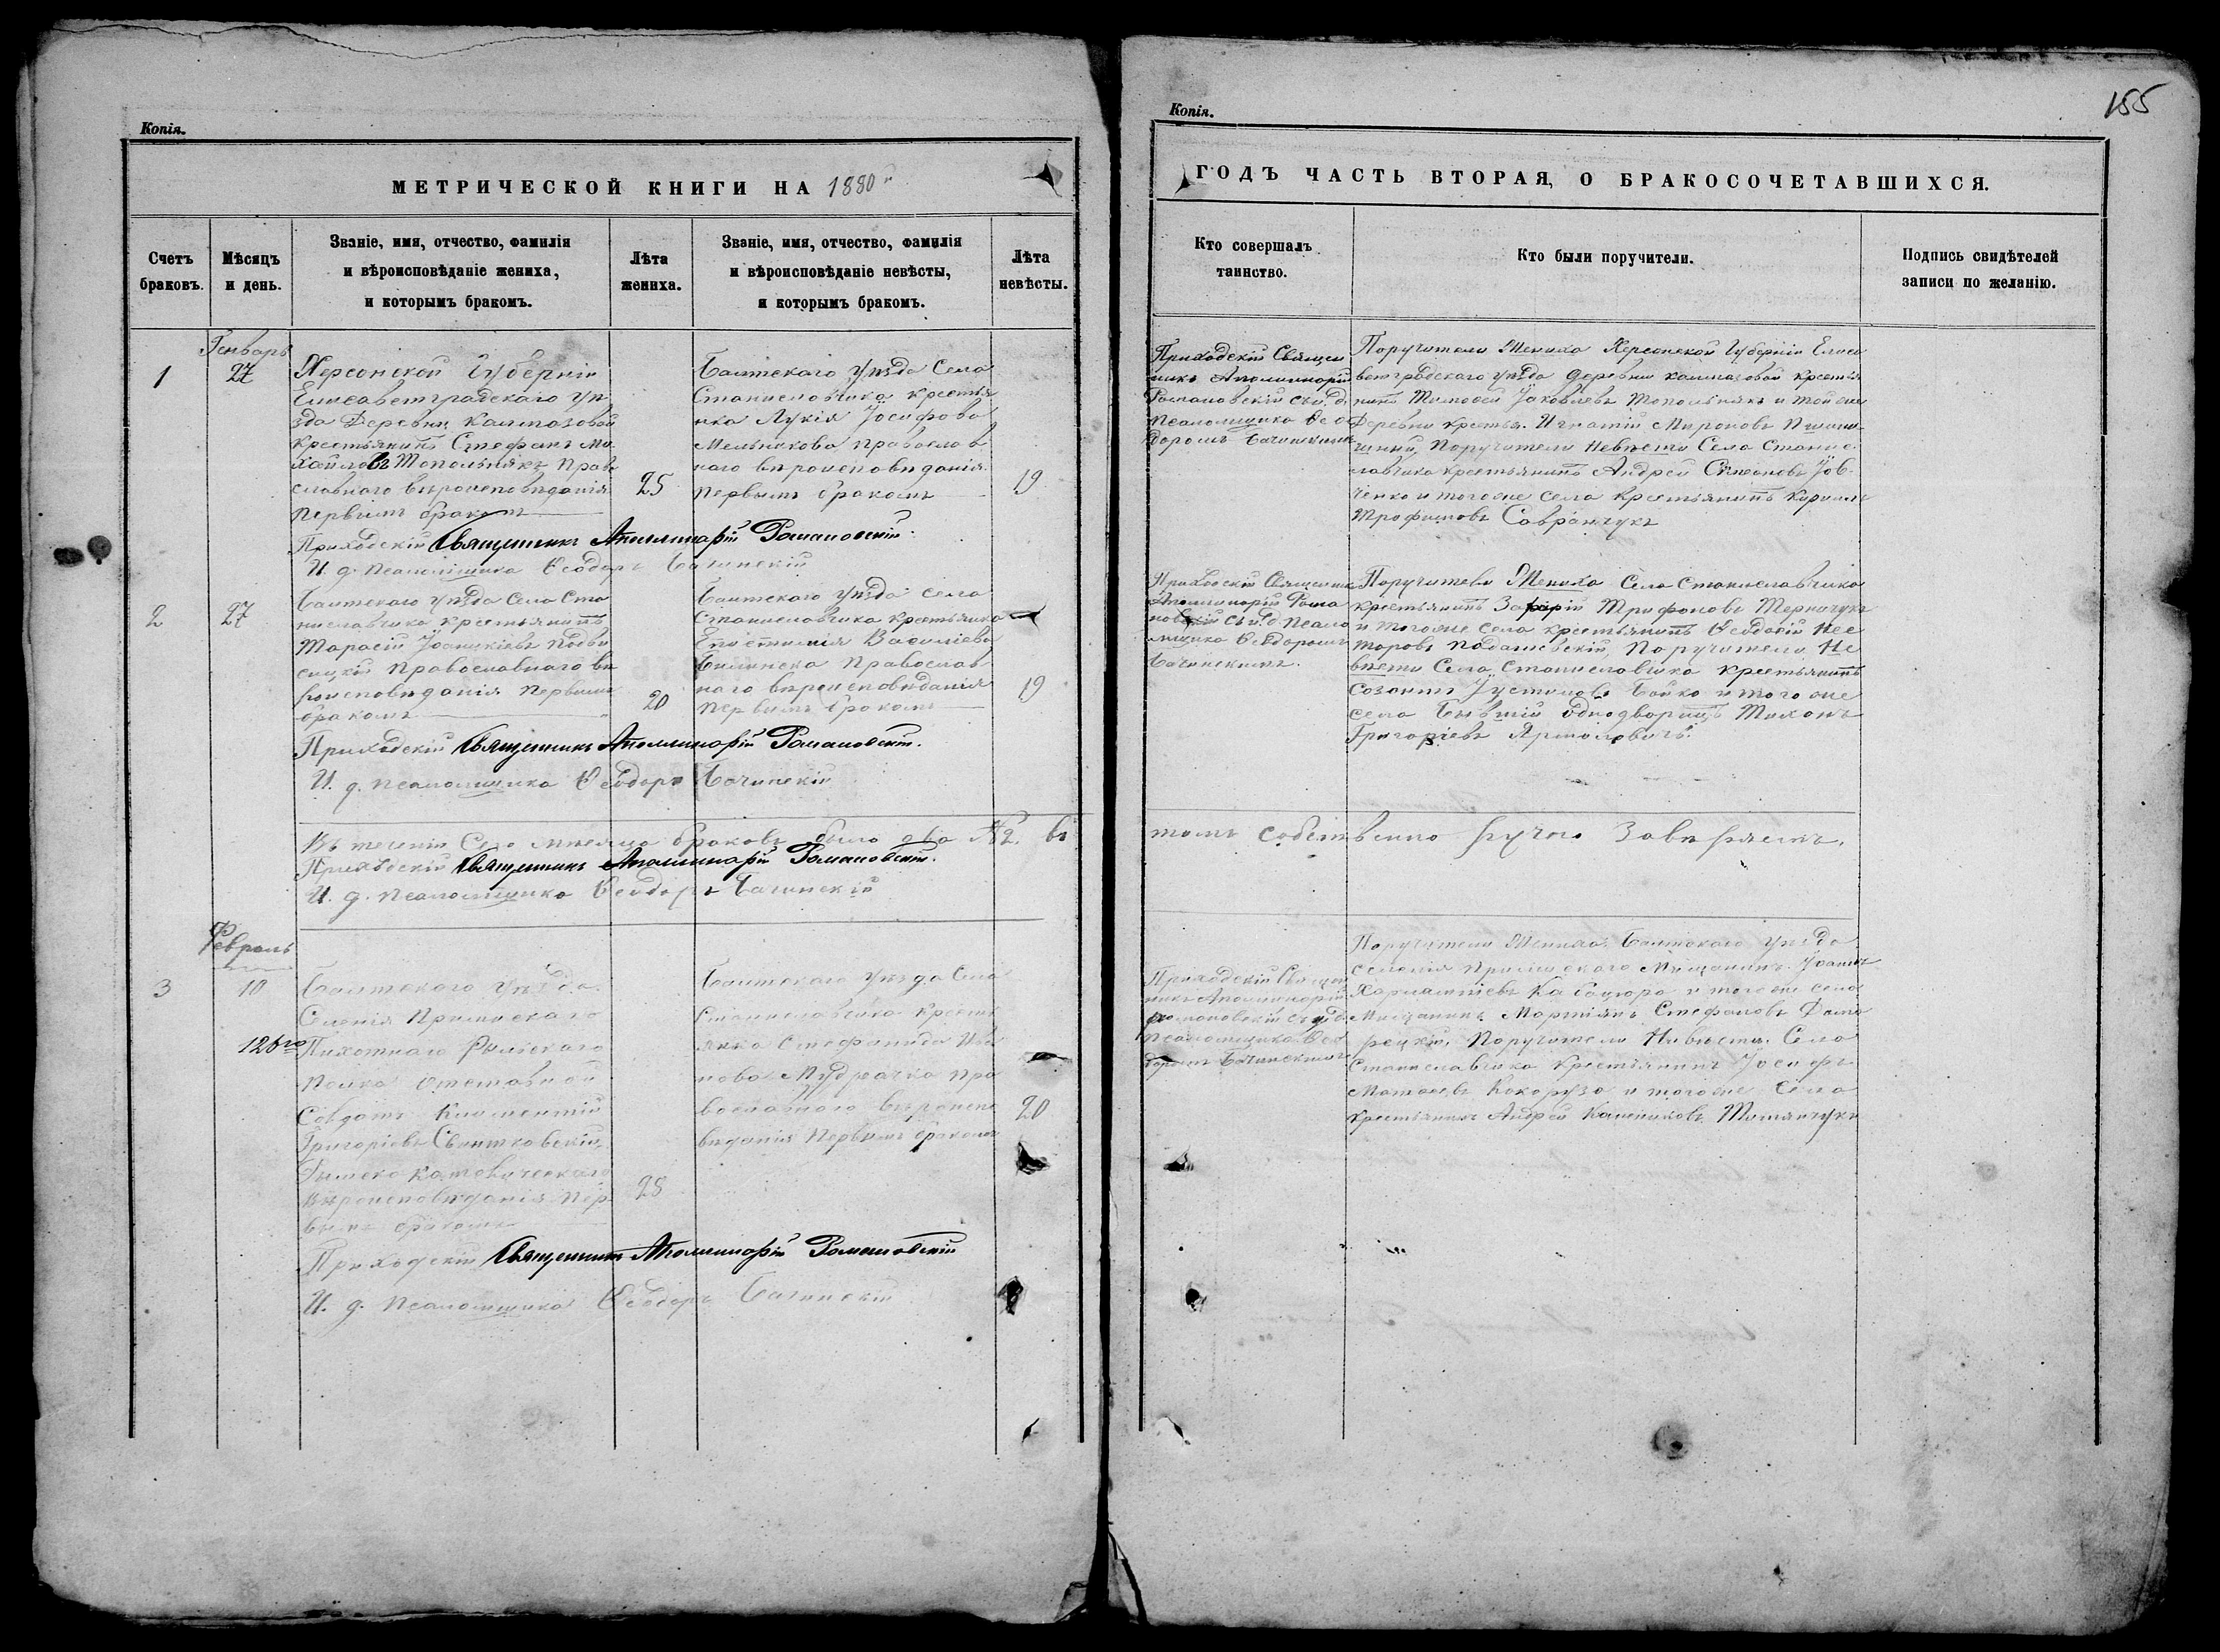 Копія.
МЕТРИЧЕСКОЙ КНИГИ НА 1880й
Счетъ браковъ.
Мѣсяцъ и день.
Званіе, имя, отчество, фамилія
и вѣроисповѣданіе жениха,
и которымъ бракомъ.
Лѣта жениха.
Званіе, имя, отчество, фамилія
и вѣроисповѣданіе невѣсты,
и которымъ бракомъ.
Лѣта невѣсты.
Генварь
1
27
Херсонской Губерніи
Елисаветградскаго уѣ
зда Деревни Калмазовой
крестьянинъ Стефанъ Ми
хайловъ Топольнякъ Право
славнаго вѣроисповѣданія
первымъ бракомъ
25
Балтскаго уѣзда Села
Станиславчика крестья
нка Лукія Іосифова
Мельникова православ
наго вѣроисповѣданія
первымъ бракомъ
19
Приходскій Священникъ Аполлинарій Романовскій.
И. д. псаломщика Ѳеодоръ Бачинскій
2
27
Балтскаго уѣзда Села Ста
ниславчика крестьянинъ
Тарасій Іоанкіевъ
Православнаго вѣ
роисповѣданія первымъ
бракомъ
20
Балтскаго уѣзда Села
Станиславчика крестьянка
Епистимія Василіева
Билинска Православ
наго вѣроисповѣданія
первымъ бракомъ
19
Приходскій Священникъ Аполлинарій Романовскій.
И. д. псаломщика Ѳеодоръ Бачинскій
Въ теченіи Сего мѣсяца браковъ было два №2. въ
Приходскій Священникъ Аполлинарій Романовскій.
И. д. псаломщика Ѳеодоръ Бачинскій
Февраль
3
10
Балтскаго уѣзда
Селенія
126го Пѣхотнаго Рыльскаго
полка отставной
Солдатъ Климентій
Григоріевъ Свентковскій,
Римско католическаго
вѣроисповѣданія пер
вымъ бракомъ
28
Балтскаго уѣзда Села
Станиславчика крест
янка Стефанида Ива
нова Мудрачка пра
вославнаго вѣроиспо
вѣданія первымъ бракомъ
20
Приходскій Священникъ Аполлинарій Романовскій
И. д. псаломщика Ѳеодоръ Бачинскій
Копія.
155
ГОДЪ ЧАСТЬ ВТОРАЯ, О БРАКОСОЧЕТАВШИХСЯ.
Кто совершалъ таинство.
Кто были поручители.
Подпись свидѣтелей записи по желанію.
Приходскій Священ
никъ Аполлинарій
Романовскій съ и. д.
псаломщика Ѳео
доромъ Бачинскимъ
Поручители Жениха Херсонской Губерніи Елиса
ветградскаго уѣзда деревни калмазовой крестья
нинъ Тимофей Яковлевъ Топольнякъ и той же
Деревни крестья. Игнатій Мироновъ
Поручители Невѣсты Села Станис
лавчика крестьянинъ Андрей Стефановъ Іов
ченко и того же села крестьянинъ Кириллъ
Трофимовъ Савранчукъ
Приходскій Священникъ
Аполлинарій Рома
новскій съ и. д. псало
мщика Ѳеодоромъ
Бачинскимъ.
Поручители Жениха Села Станиславчика
крестьянинъ Трифоновъ Терначукъ
и того же села крестьянинъ Ѳеодосій Нес
торовъ Подашевскій, Поручители Не
вѣсты Села Станиславчика крестьянинъ
Созонтъ Іустиновъ Бойко и того же
села Бывшій однодворецъ Тихонъ
Григоріевъ Ярмоловичъ.
томъ собственно ручно завѣряемъ.
Приходскій Священ
никъ Аполлинарій
Романовскій съ и. д.
псаломщика Ѳео
доромъ Бачинскимъ
Поручители Жениха Балтскаго уѣзда
селенія Мѣщанинъ Іоаннъ
Харлампіевъ и того же села
Мѣщанинъ Мартинянъ Стефановъ
Поручители Невѣсты Села
Станиславчика Крестьянинъ Іосифъ
Матвеевъ Кокоруза и того же Села
крестьянинъ Андрей